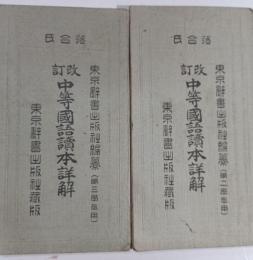 落合氏
改訂
中等國語讀本詳解
東京辭書出版社編纂(第三學年用)
東京辭書出版社藏版
落合氏
改訂
中等國語讀本詳解
東京辭書出版社編纂(第二學年用)
東京辭書出版社藏版